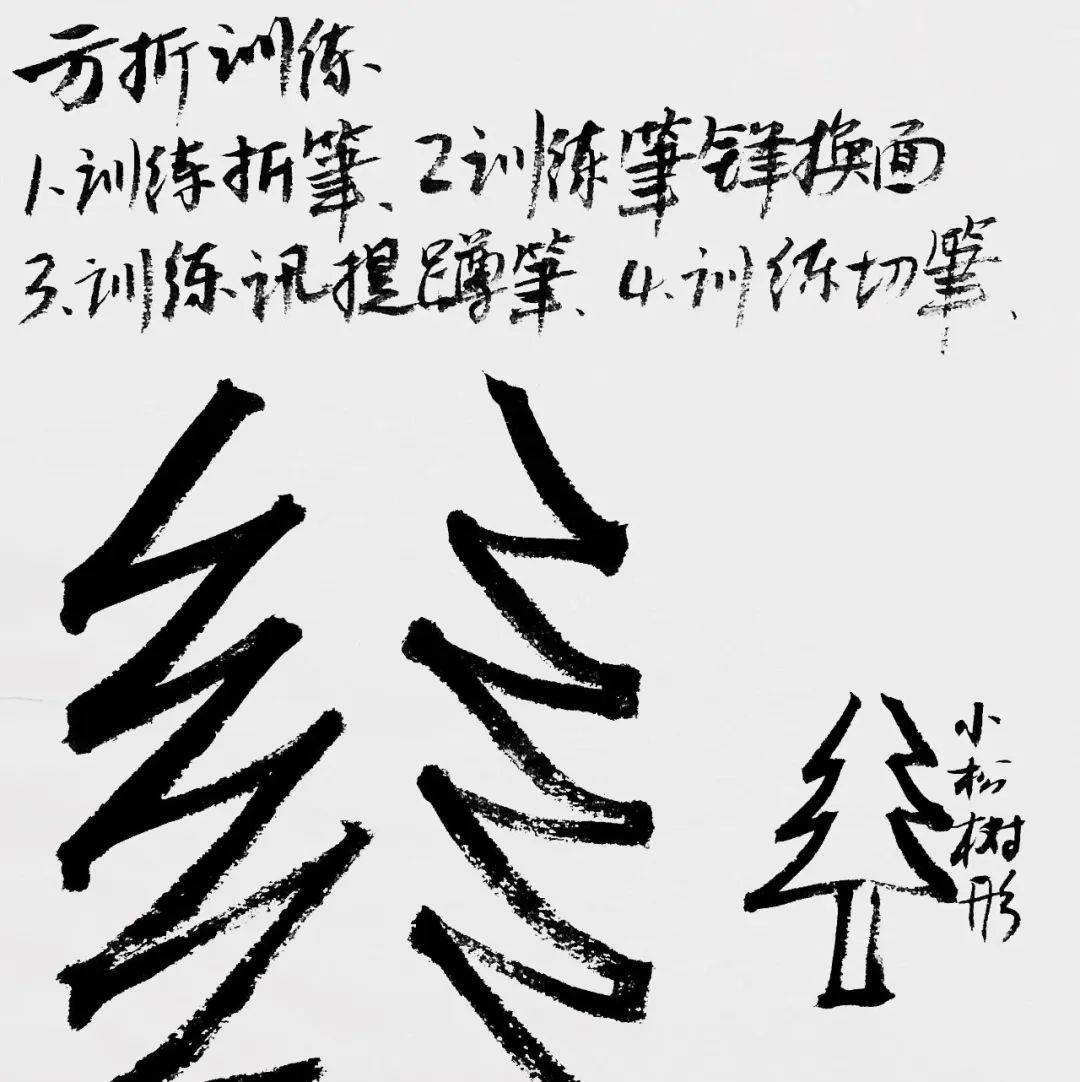 方折训练、
1.训练折筆、2训练筆锋换面
3.训练讯提蹲筆、4.训练切筆、
小松树形